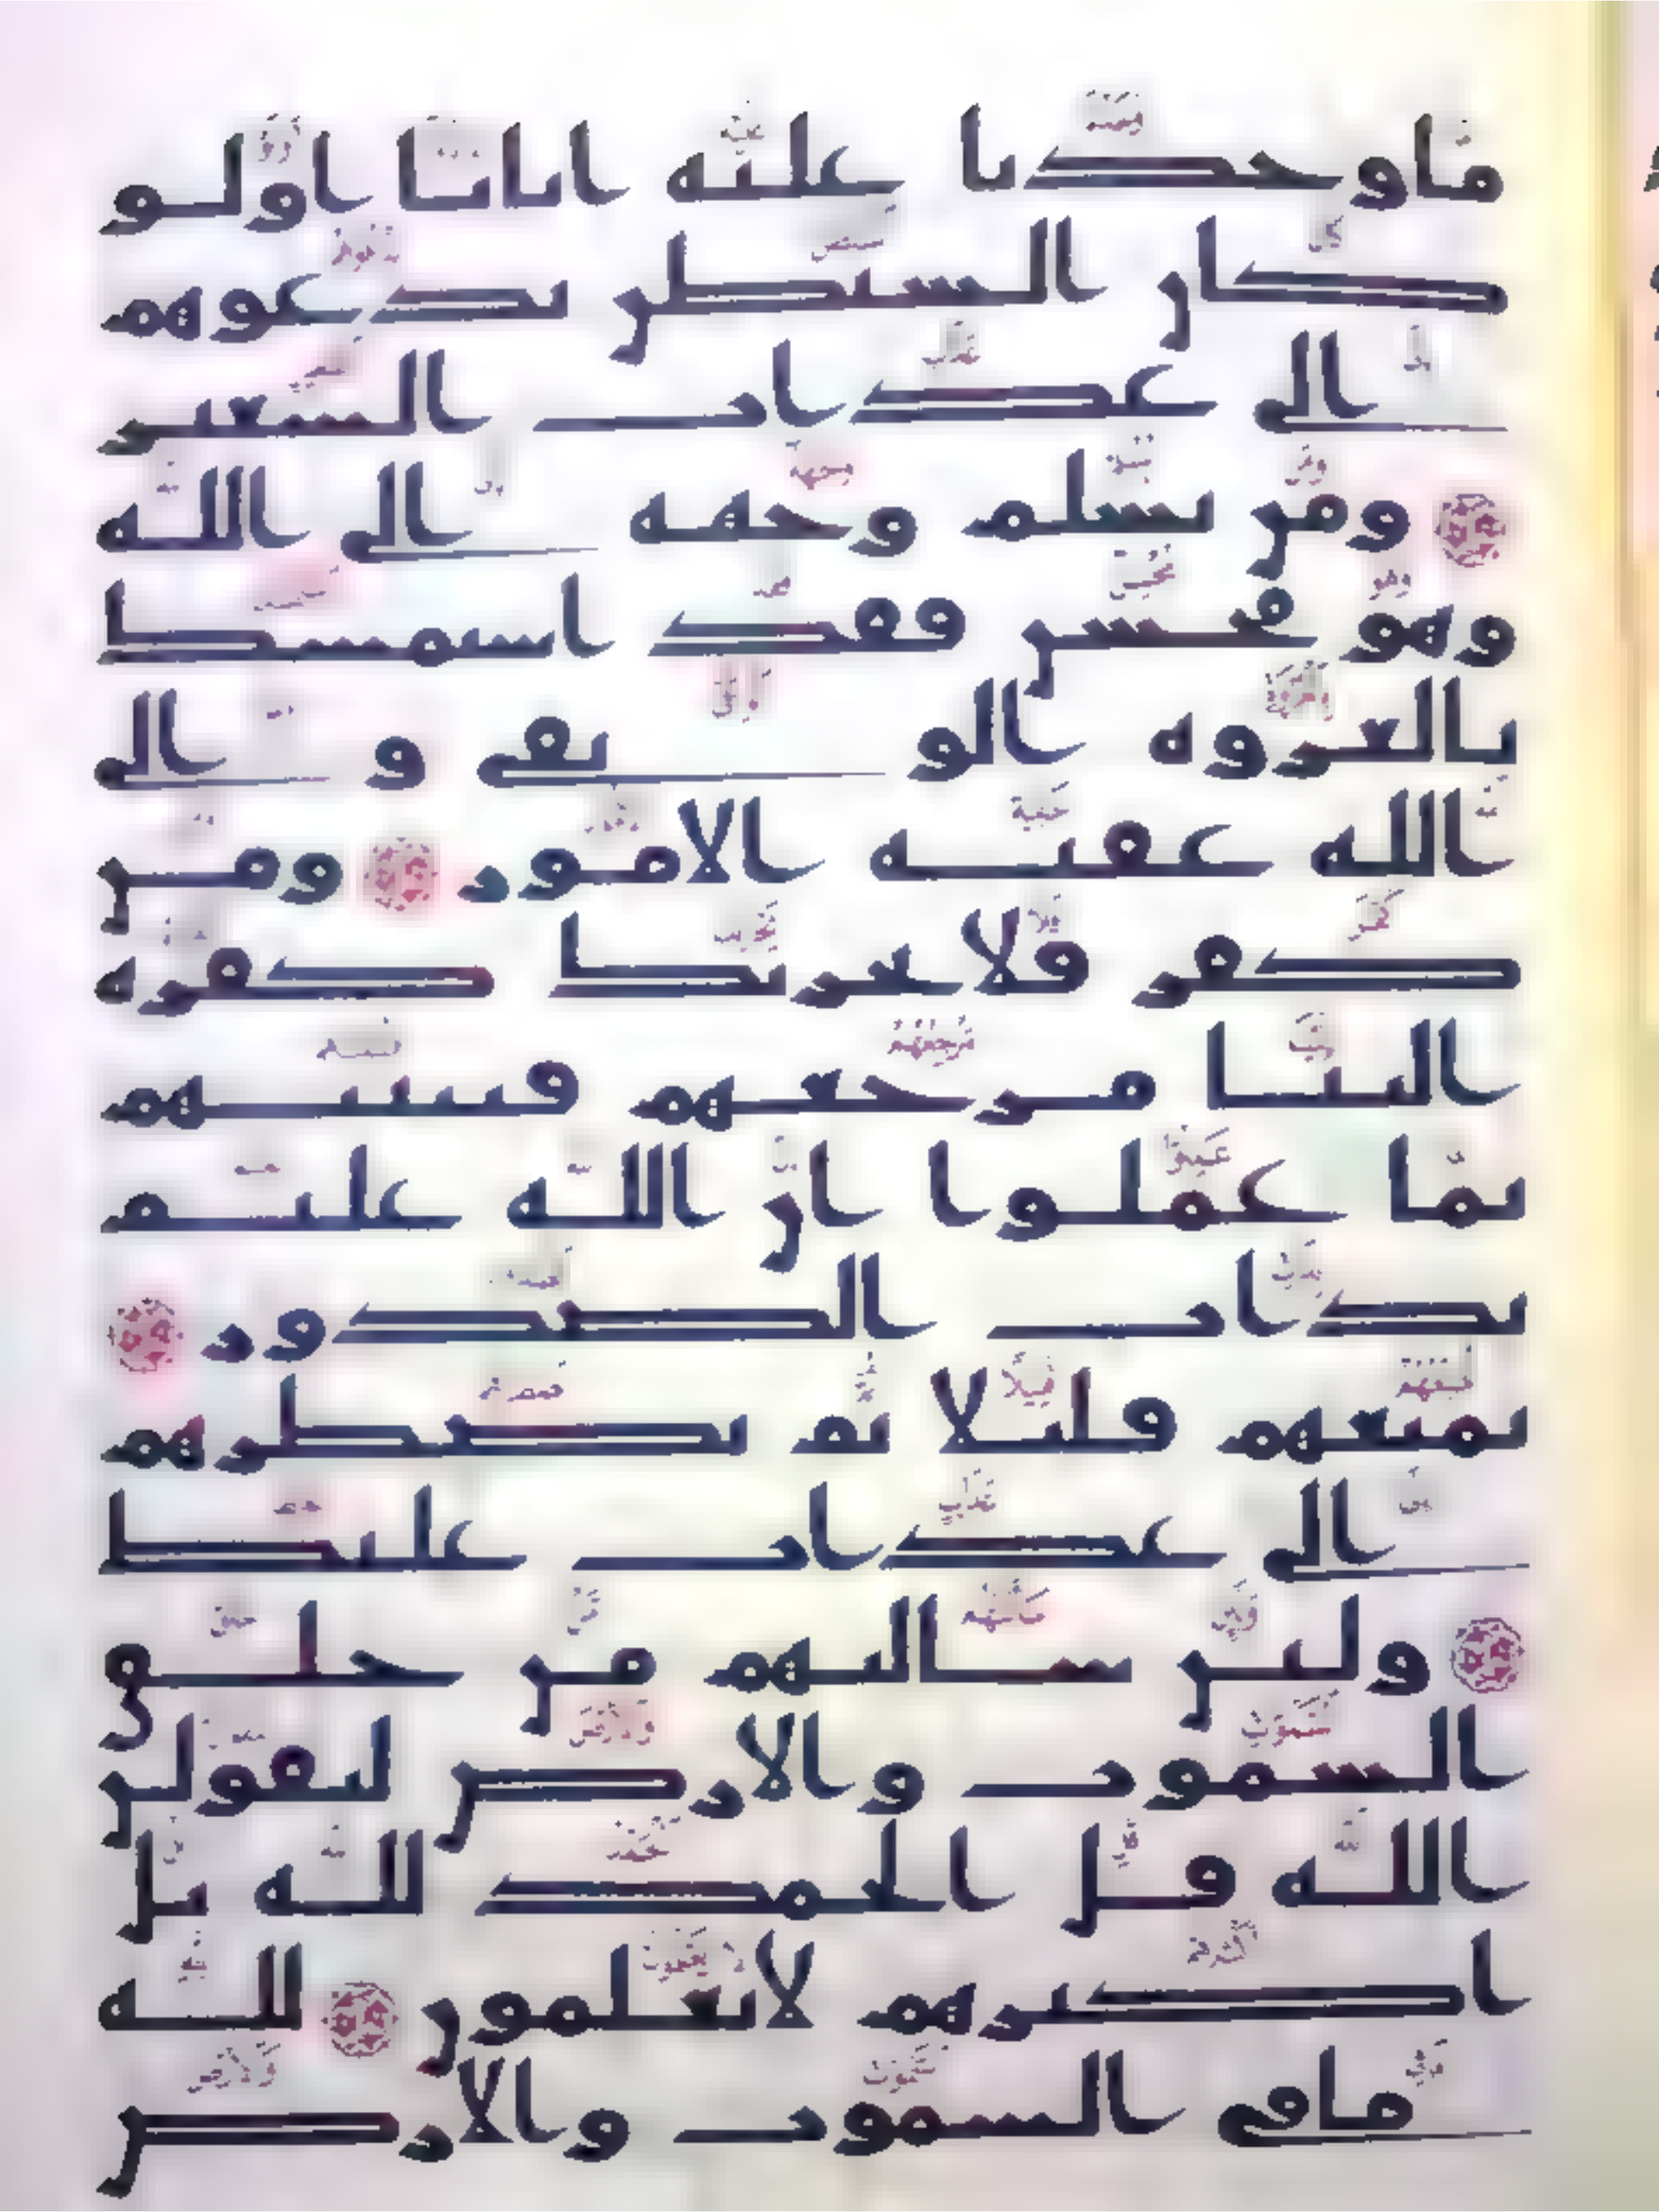 ما وجدنا عليه اباءنا اولو
كان الشيطن يدعوهم
الى عذاب السعير
ومن يسلم وجهه الى الله
وهو محسن فقد استمسك
بالعروة الوثقى و الى
الله عقبة الامور ومن
كفر فلا يحزنك كفره
الينا مرجعهم فننبئهم
بما عملوا ان الله عليم
بذات الصدور
نمتعهم قليلا ثم نضطرهم
الى عذاب غليظ
ولئن سالتهم من خلق
السموت والارض ليقولن
الله قل الحمد لله بل
اكثرهم لا يعلمون لله
ما فى السموت والارض